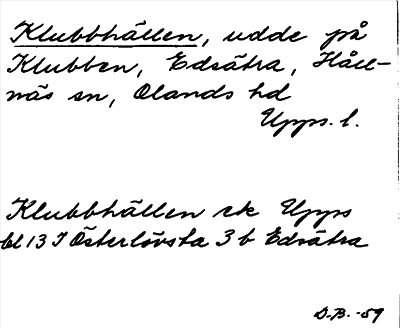 Klubbhällen, udde på
Klubben, Edsätra, Håll-
näs sn, Olands hd
Upps. l.
Klubbhällen ek Upps
bl 13 I Österlövsta 3 b Edsätra
D.B. -59